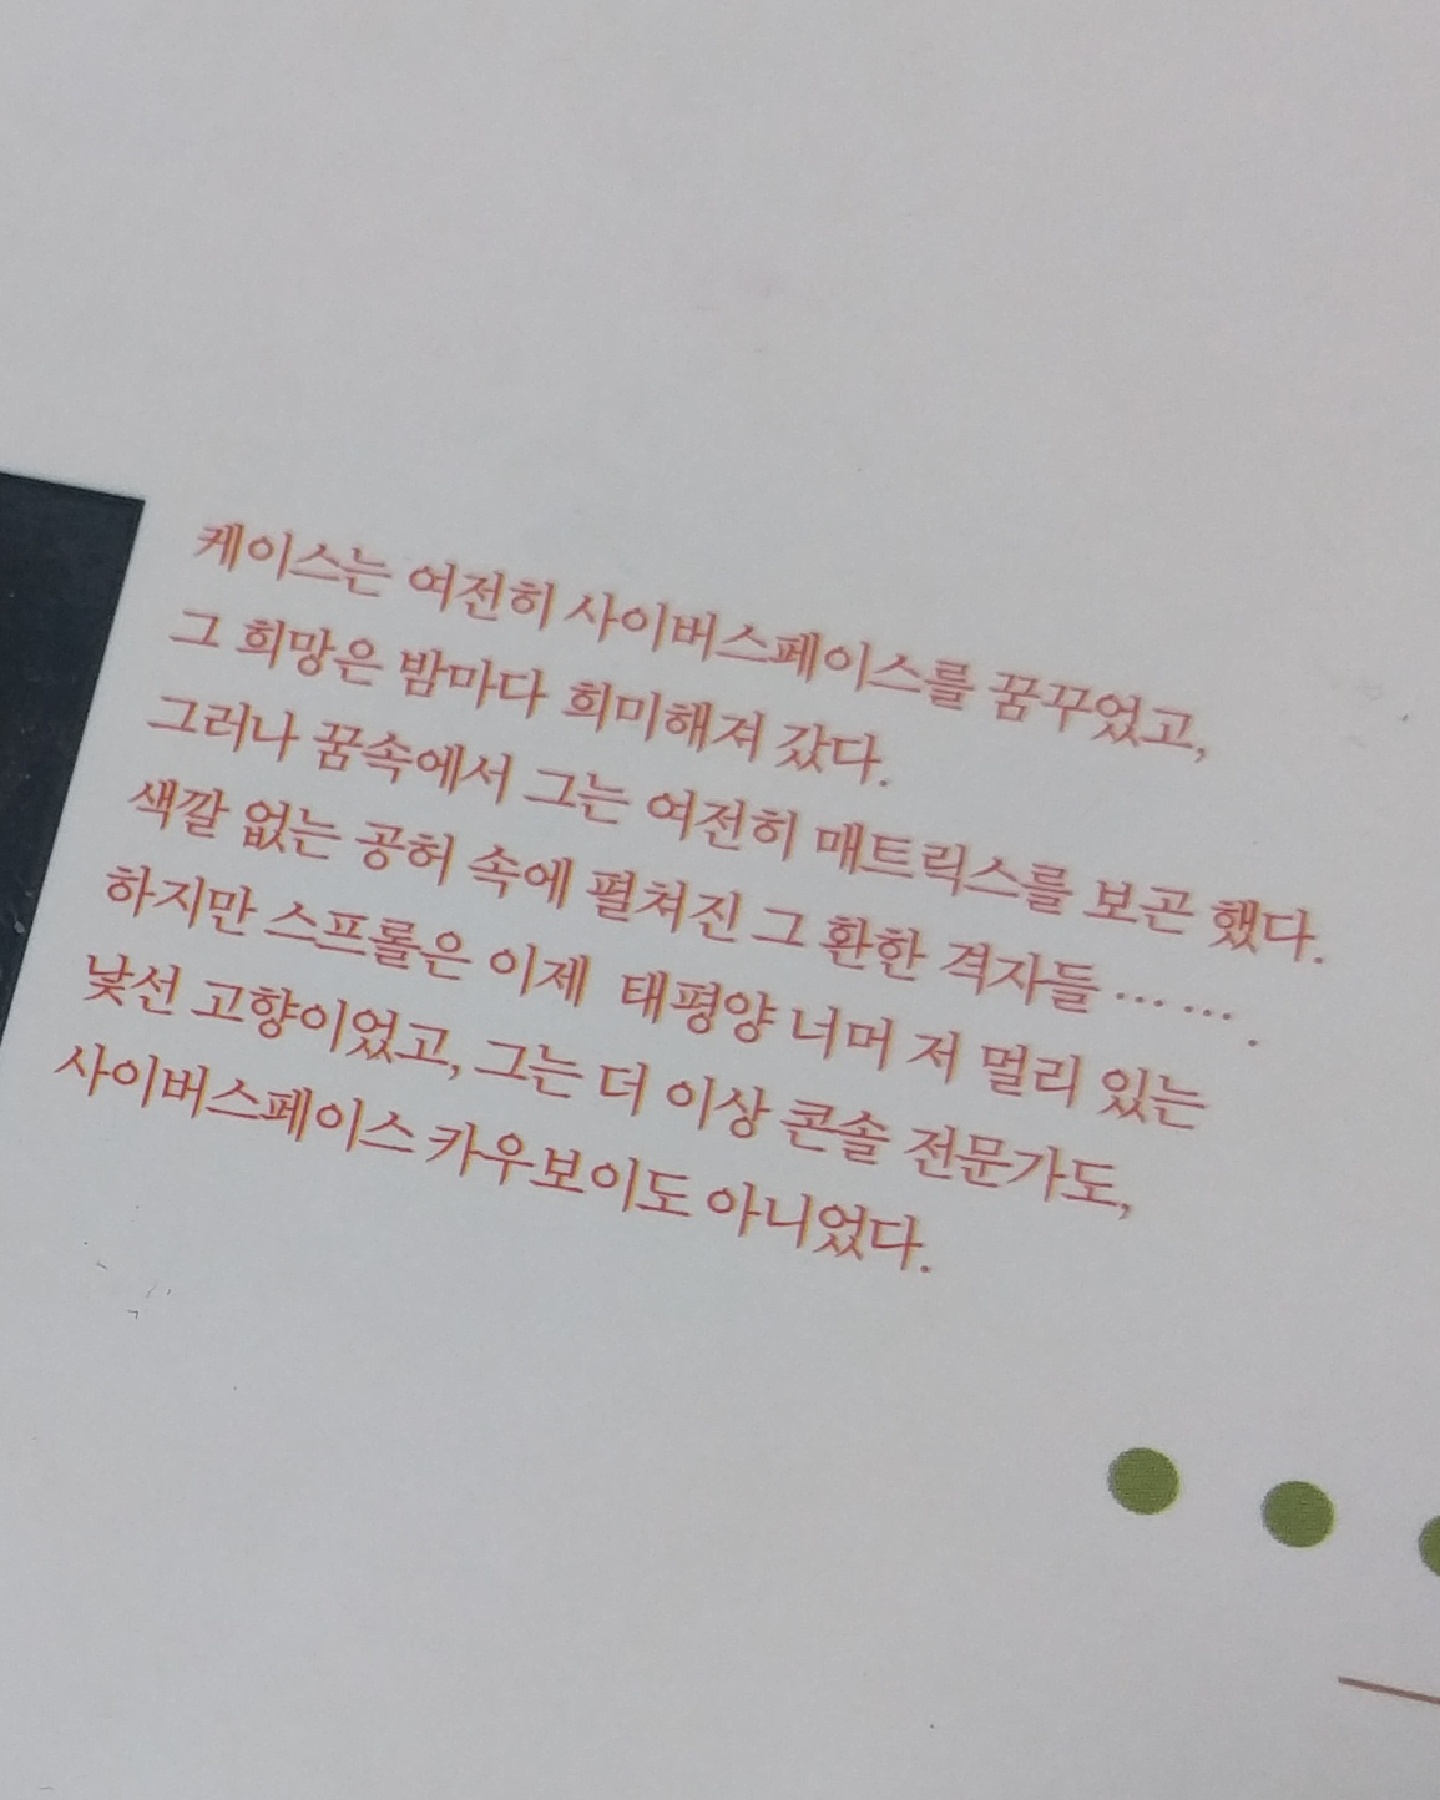 케이스는 여전히 사이버스페이스를 꿈꾸었고,
그 희망은 밤마다 희미해져 갔다.
그러나 꿈속에서 그는 여전히 매트릭스를 보곤 했다.
색깔 없는 공허 속에 펼쳐진 그 환한 격자들…….
하지만 스프롤은 이제 태평양 너머 저 멀리 있는
낯선 고향이었고, 그는 더 이상 콘솔 전문가도,
사이버스페이스 카우보이도 아니었다.